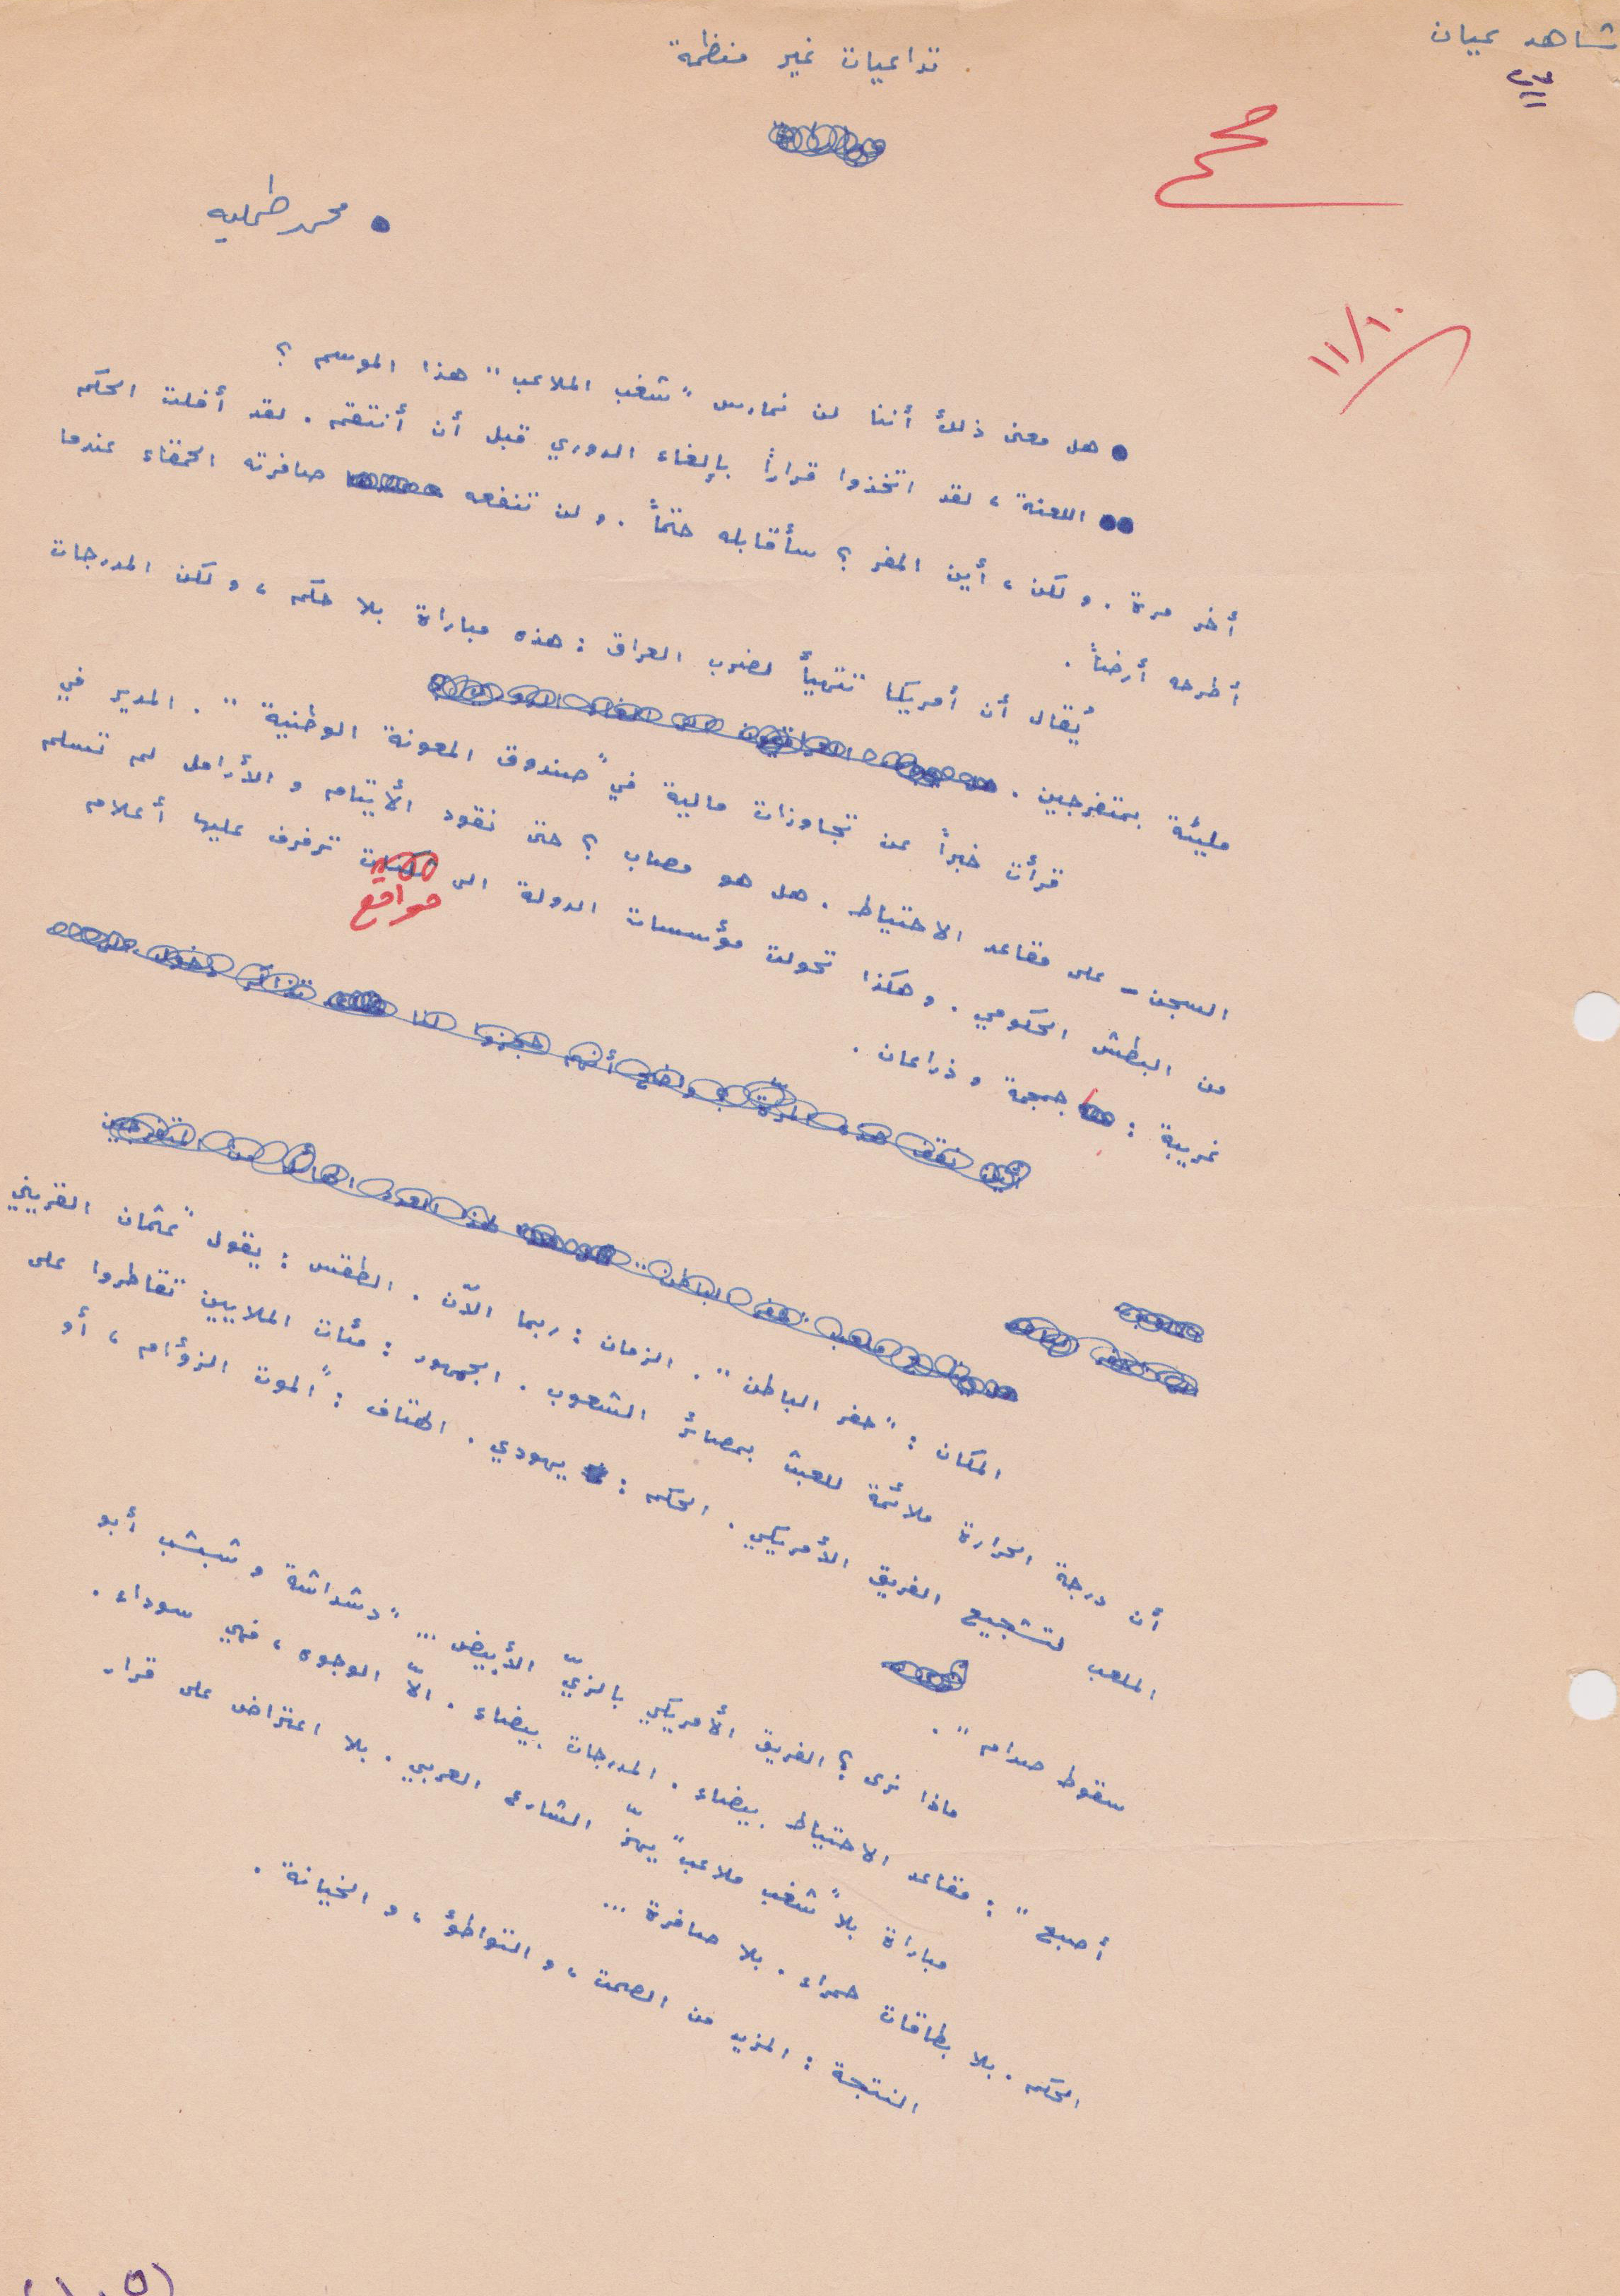 شاهد عيان
تداعيات غير منظمة
صح
● محمد طمليه
١١/١٠
● هل معنى ذلك أننا لن نمارس "شغب الملاعب" هذا الموسم ؟
●● اللعنة ، لقد اتخذوا قراراً بإلغاء الدوري قبل أن أنتقم . لقد أفلت الحكم
أخر مرة . ولكن ، أين المفر ؟ سأقابله حتماً . ولن تنفعه صافرته الحمقاء عندما
أطرحه أرضاً .
يُقال أن أمريكا تتهيأ لضرب العراق : هذه مباراة بلا حكم ، ولكن المدرجات
مليئة بمتفرجين .
قرأت خبراً عن تجاوزات مالية في "صندوق المعونة الوطنية" . المدير في
السجن - على مقاعد الاحتياط . هل هو مصاب ؟ حتى نقود الأيتام و الأرامل لم تسلم
من البطش الحكومي . وهكذا تحولت مؤسسات الدولة الى مواقع ترفرف عليها أعلام
غريبة : جمجمة وذراعان .
المكان : "حفر الباطن" . الزمان : ربما الآن . الطقس : يقول "عثمان القريني
أن درجة الحرارة ملائمة للعبث بمصائر الشعوب . الجمهور : مئات الملايين تقاطروا على
الملعب لتشجيع الفريق الأمريكي . الحكم : يهودي . الهتاف : "الموت الزؤام ، أو
سقوط صدام" .
ماذا نرى ؟ الفريق الأمريكي بالزيّ الأبيض ... "دشداشة وشبشب أبو
أصبع" : مقاعد الاحتياط بيضاء . المدرجات بيضاء . الاّ الوجوه ، فهي سوداء .
مباراة بلا "شغب ملاعب" يهزّ الشارع العربي . بلا اعتراض على قرار
الحكم . بلا بطاقات حمراء . بلا صافرة ...
النتجة : المزيد من الصمت ، و التواطؤ ، و الخيانة .